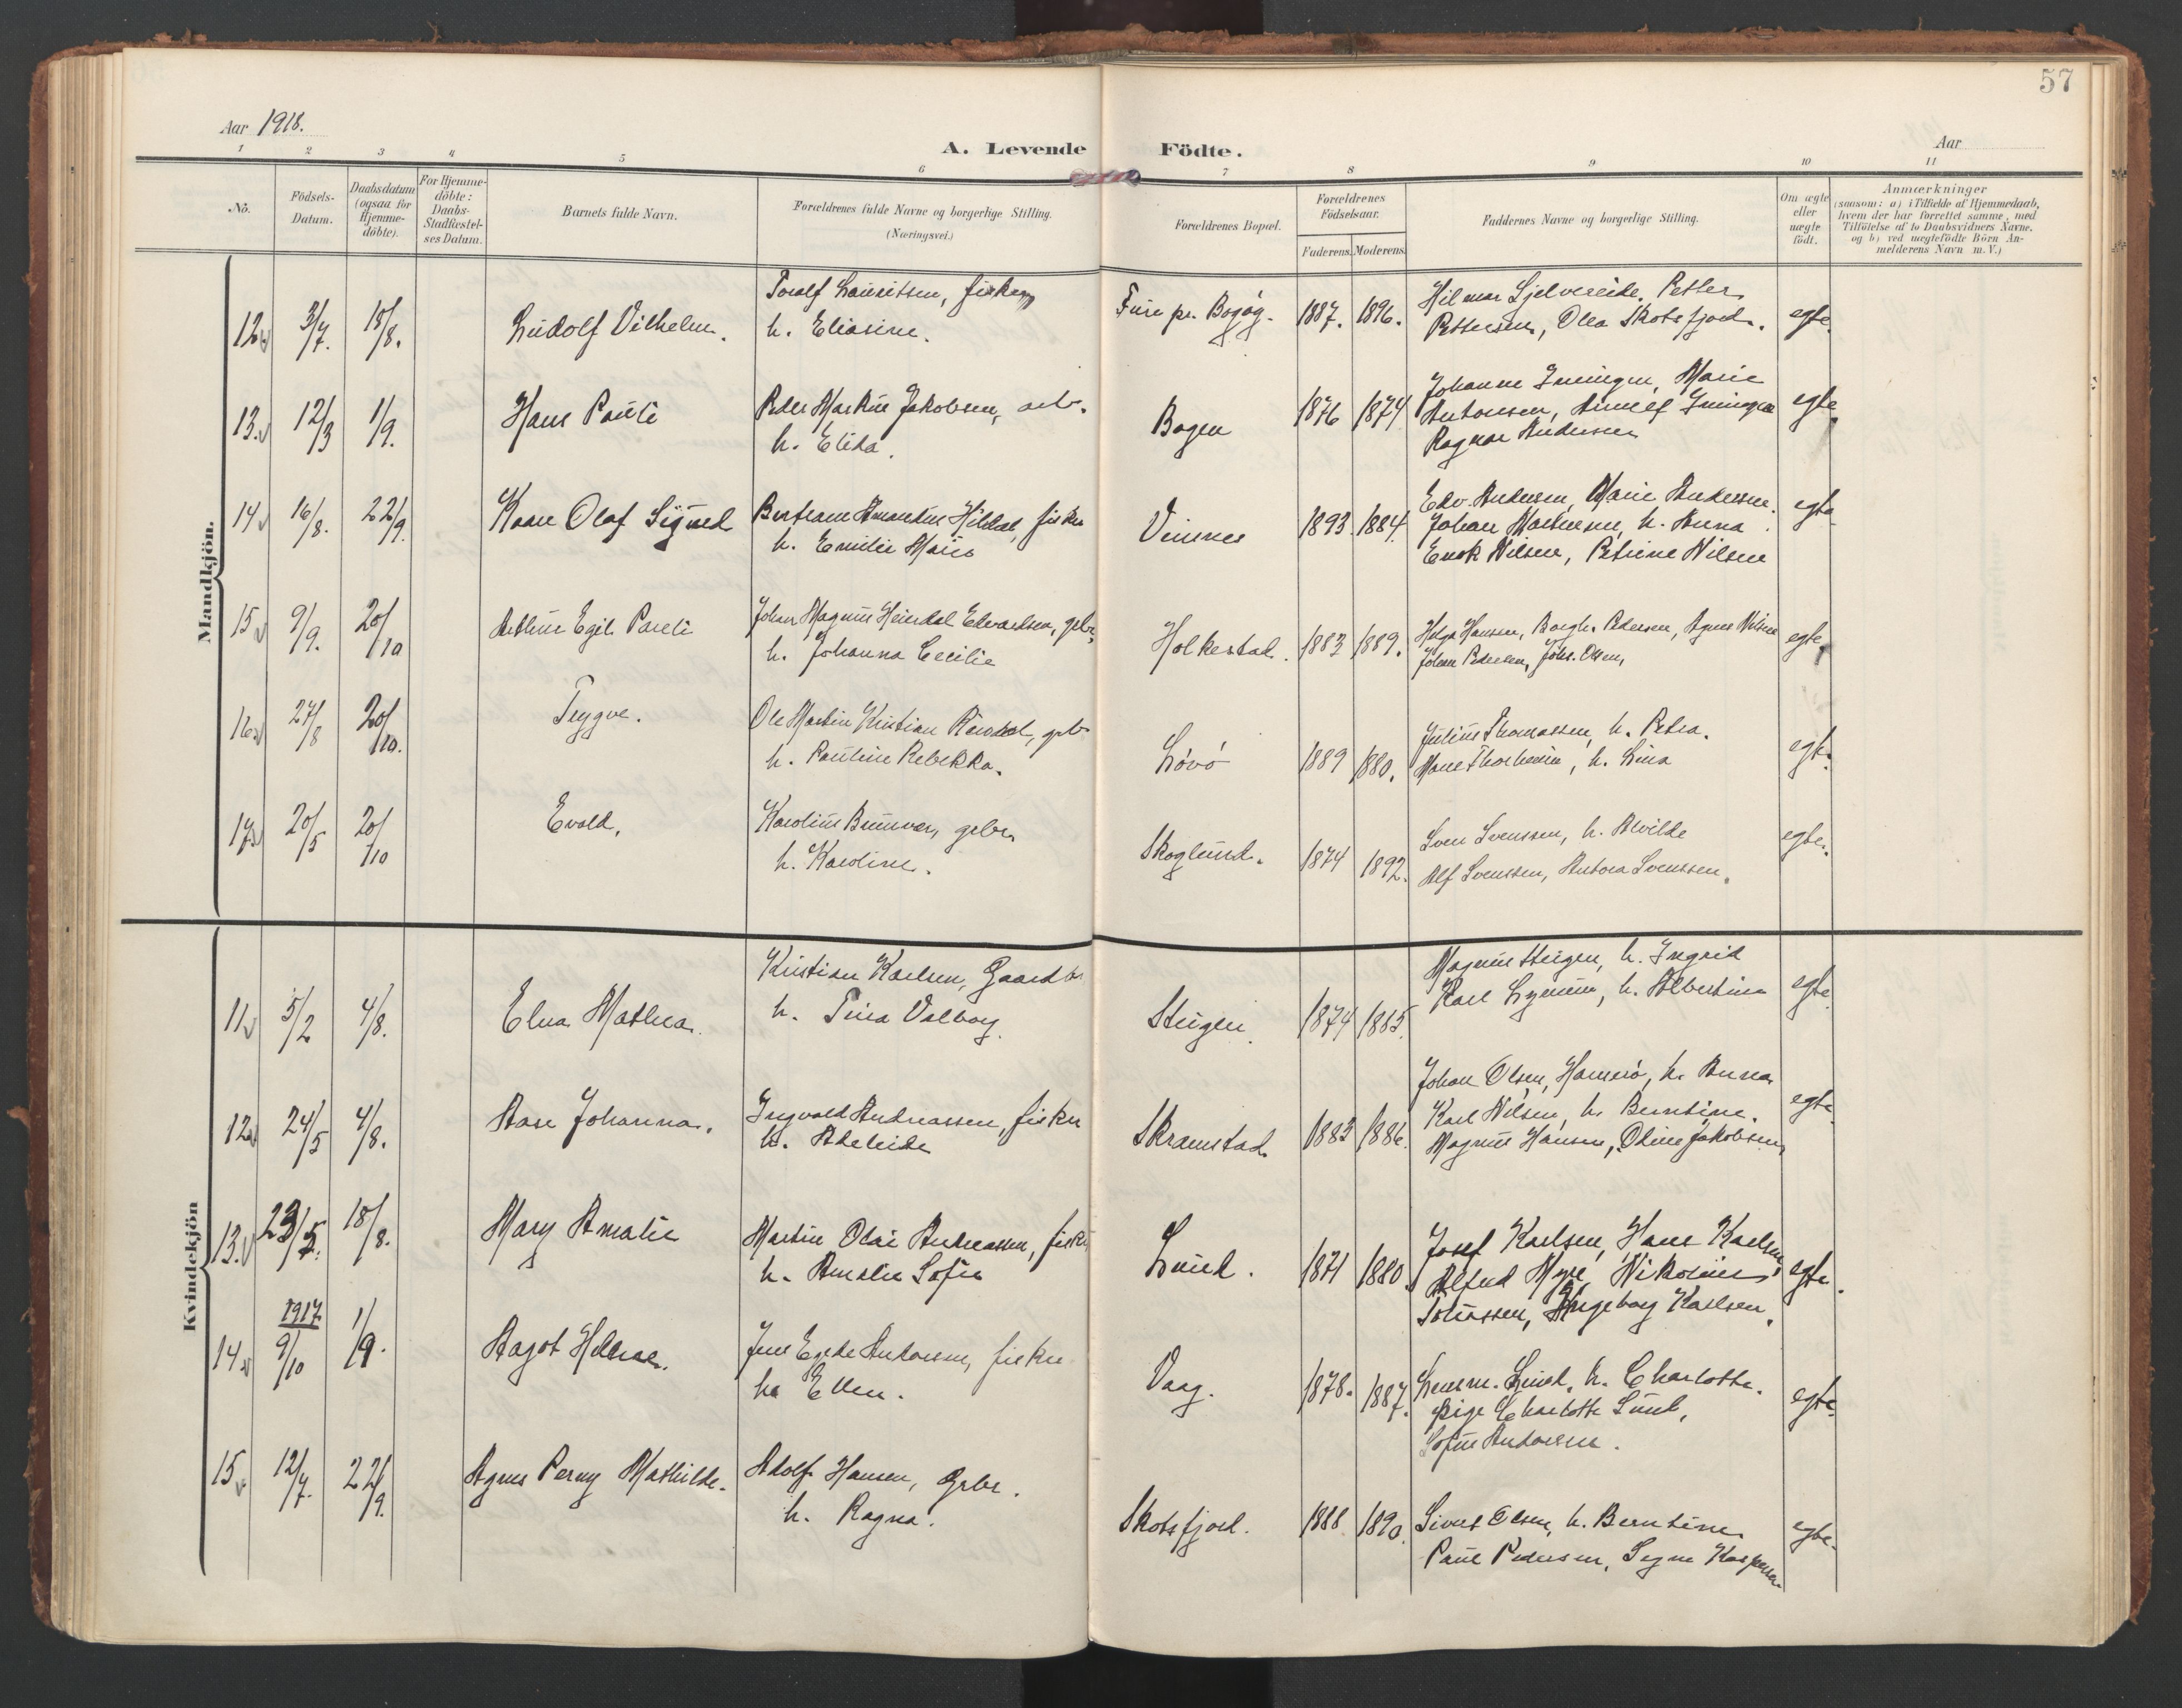 57
Aar 1918.
A. Levende Födte.
Aar
1 2 3 4 5 6 7 8 9 10 11
No.
Födsels-Datum.
Daabsdatum (ogsaa for Hjemme-döbte).
For Hjemme-döbte: Daabs-Stadfæstel-ses Datum.
Barnets fulde Navn.
Forældrenes fulde Navne og borgerlige Stilling. (Næringsvei.)
Forældrenes Bopæl.
Forældrenes Födselsaar.
Faderens. Moderens.
Faddernes Navne og borgerlige Stilling.
Om ægte eller uægte födt.
Anmærkninger
(saasom: a) i Tilfælde af Hjemmedaab, hvem der har forrettet samme, med Tilföielse af to Daabsvidners Navne, og b) ved uægtefödte Börn An-melderens Navn m.V.)
Mandkjön.
12 3/7. 18/8. Ludolf Vilhelm. Toralf Lauritsen, fisker
h. Eliasine.
Bogøy. 1887. 1896. Hilmar Petter
Pettersen, Olea Skotsfjord. egte.
13. 12/3 1/9. Hans Pauli Peder Markus Jakobsen, arb.
h. Elida.
Bogen 1876 1874 Johanne Marie
Antonsen,
Ragnar Andersen egte
14 16/8. 22/9. Kaare Olaf Sigurd fisker
h. Emilie Marie
Vinnes 1893. 1884. Edv. Andersen, Marie Andersen.
Johan Martinsen, h. Anna.
Enok Nilsen, Petrine Nilsen egte
15 9/9. 20/10 Arthur Egil Pauli Johan Magnus Heirdal Edvardsen, gbr,
h. Johanna Cecilie
Holkestad. 1883 1889. Helga Hansen, Borgh. Pedersen, Agnes Nilsen
Johan Pedersen, Johs. Olsen, egte,
16. 27/8 20/10. Trygve. Ole Martin Kristian gbr
h. Pauline Rebekka.
Løvø 1889 1880. Julius Thomassen, h. Petra.
h. Lina egte.
17. 20/5 20/10 Evald. Karolius Brunvær, grbr.
h. Karoline.
Skoglund. 1874 1892. Sven Svenssen, h. Alvilde
Alf Svenssen, Antora Svenssen. egte.
Kvindekjön
11 5/2 4/8. Elna Mathea. Kristian Karlsen, Gaardbr
h. Tina Valborg.
Steigen. 1874 1885. Magnus Steigen, h. Ingrid
Karl h. Albertine egte
12 24/5 4/8. Aase Johanna. Ingvald Andreassen, fisker
h. Adeleide
Skramstad. 1883 1886. Johan Olsen, Hamerø, h. Anna
Karl Nilsen, h. Berntine.
Magnus Hansen, Oline Jakobsen egte
13. 23/5. 18/8. Mary Amalie Martin Olai Andreassen, fisker
h. Amalie Sofie
Lund. 1871 1880 Josef Karlsen, Hans Karlsen,
Alfred Myre, Nikoline
Tobiassen, Ingeborg Karlsen. egte.
14. 1917 9/10 1/9. Aagot Helene. Jens Egede Antonsen, fisker
h. Ellen.
Vaag. 1878. 1887. Lensm. Lund, h. Charlotte.
Pige Charlotte Lund,
Sofie Antonsen. egte.
15 12/7. 22/9. Agnes Perny Mathilde. Adolf Hansen, Grbr.
h. Ragna.
Skotsfjord. 1888 1890. Sivert Olsen, h. Berntine
Paul Pedersen, Signe Kaspersen egte.